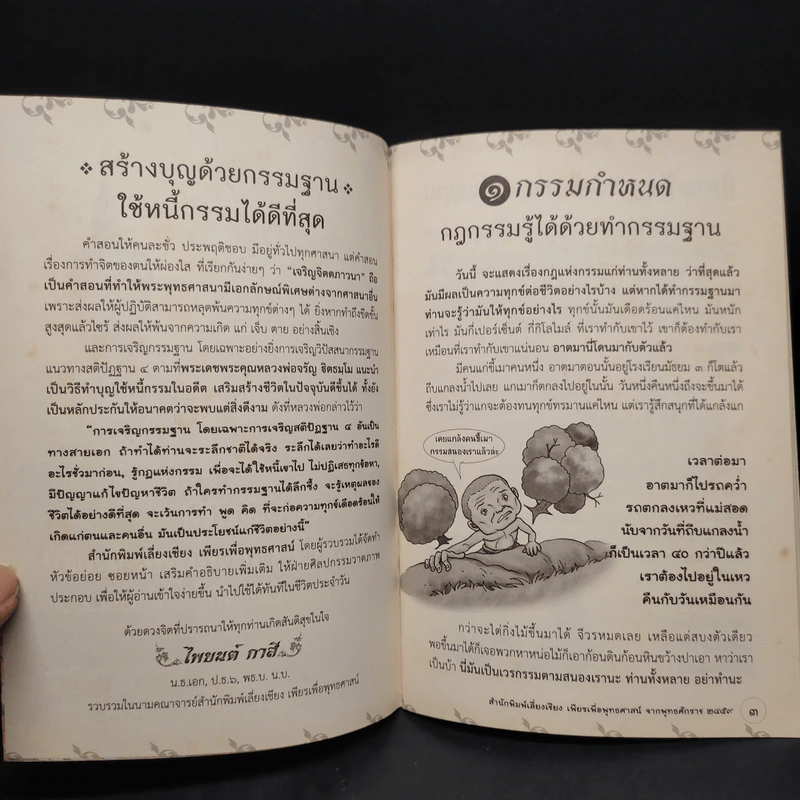 สร้างบุญด้วยกรรมฐาน
ใช้หนี้กรรมได้ดีที่สุด
คำสอนให้คนละชั่ว ประพฤติชอบ มีอยู่ทั่วไปทุกศาสนา แต่คำสอน
เรื่องการทำจิตของตนให้ผ่องใส ที่เรียกกันง่ายๆ ว่า "เจริญจิตตภาวนา" ถือ
เป็นคำสอนที่ทำให้พระพุทธศาสนามีเอกลักษณ์พิเศษต่างจากศาสนาอื่น
เพราะส่งผลให้ผู้ปฏิบัติสามารถหลุดพ้นความทุกข์ต่างๆ ได้ ยิ่งหากทำถึงขีดขั้น
สูงสุดแล้วไซร้ ส่งผลให้พ้นจากความเกิด แก่ เจ็บ ตาย อย่างสิ้นเชิง
และการเจริญกรรมฐาน โดยเฉพาะอย่างยิ่งการเจริญวิปัสสนากรรมฐาน
แนวทางสติปัฏฐาน ๔ ตามที่พระเดชพระคุณหลวงพ่อจรัญ ฐิตธมฺโม แนะนำ
เป็นวิธีทำบุญใช้หนี้กรรมในอดีต เสริมสร้างชีวิตในปัจจุบันดีขึ้นได้ ทั้งยัง
เป็นหลักประกันให้อนาคตว่าจะพบแต่สิ่งดีงาม ดังที่หลวงพ่อกล่าวไว้ว่า
"การเจริญกรรมฐาน โดยเฉพาะการเจริญสติปัฏฐาน ๔ อันเป็น
ทางสายเอก ถ้าทำได้ท่านจะระลึกชาติได้จริง ระลึกได้เลยว่าทำอะไรดี
อะไรชั่วมาก่อน, รู้กฎแห่งกรรม เพื่อจะได้ใช้หนี้เขาไป ไม่ปฏิเสธทุกข้อหา,
มีปัญญาแก้ไขปัญหาชีวิต ถ้าใครทำกรรมฐานได้ลึกซึ้ง จะรู้เหตุผลของ
ชีวิตได้อย่างดีที่สุด จะเว้นการทำ พูด คิด ที่จะก่อความทุกข์เดือดร้อนให้
เกิดแก่ตนและคนอื่น มันเป็นประโยชน์แก่ชีวิตอย่างนี้"
สำนักพิมพ์เลี่ยงเชียง เพียรเพื่อพุทธศาสน์ โดยผู้รวบรวมได้จัดทำ
หัวข้อย่อย ซอยหน้า เสริมคำอธิบายเพิ่มเติม ให้ฝ่ายศิลปกรรมวาดภาพ
ประกอบ เพื่อให้ผู้อ่านเข้าใจง่ายขึ้น นำไปใช้ได้ทันทีในชีวิตประจำวัน
ด้วยดวงจิตที่ปรารถนาให้ทุกท่านเกิดสันติสุขในใจ
ไพยนต์ กาสี
น.ธ.เอก, ป.ธ.๖, พธ.บ. น.บ.
รวบรวมในนามคณาจารย์สำนักพิมพ์เลี่ยงเชียง เพียรเพื่อพุทธศาสน์
๑ กรรมกำหนด
กฎกรรมรู้ได้ด้วยทำกรรมฐาน
วันนี้ จะแสดงเรื่องกฎแห่งกรรมแก่ท่านทั้งหลาย ว่าที่สุดแล้ว
มันมีผลเป็นความทุกข์ต่อชีวิตอย่างไรบ้าง แต่หากได้ทำกรรมฐานมา
ท่านจะรู้ว่ามันให้ทุกข์อย่างไร ทุกข์นั้นมันเดือดร้อนแค่ไหน มันหนัก
เท่าไร มันกี่เปอร์เซ็นต์ กี่กิโลไมล์ ที่เราทำกับเขาไว้ เขาก็ต้องทำกับเรา
เหมือนที่เราทำกับเขาแน่นอน อาตมานี่โดนมากับตัวแล้ว
มีคนแก่ขี้เมาคนหนึ่ง อาตมาตอนนั้นอยู่โรงเรียนมัธยม ๓ ก็โตแล้ว
ถีบแกลงน้ำไปเลย แกเมาก็ตกลงไปอยู่ในนั้น วันหนึ่งคืนหนึ่งถึงจะขึ้นมาได้
ซึ่งเราไม่รู้ว่าแกจะต้องทนทุกข์ทรมานแค่ไหน แต่เรารู้สึกสนุกที่ได้แกล้งแก
เคยแกล้งคนขี้เมา
กรรมสนองเราแล้วล่ะ
เวลาต่อมา
อาตมาก็ไปรถคว่ำ
รถตกลงเหวที่แม่สอด
นับจากวันที่ถีบแกลงน้ำ
ก็เป็นเวลา ๔๐ กว่าปีแล้ว
เราต้องไปอยู่ในเหว
คืนกับวันเหมือนกัน
กว่าจะไต่กิ่งไม้ขึ้นมาได้ จีวรหมดเลย เหลือแต่สบงตัวเดียว
พอขึ้นมาได้ก็เจอพวกหาหน่อไม้ก็เอาก้อนดินก้อนหินขว้างปาเอา หาว่าเรา
เป็นบ้า นี่มันเป็นเวรกรรมตามสนองเรานะ ท่านทั้งหลาย อย่าทำนะ
สำนักพิมพ์เลี่ยงเชียง เพียรเพื่อพุทธศาสน์ จากพุทธศักราช ๒๔๕๙ ๓